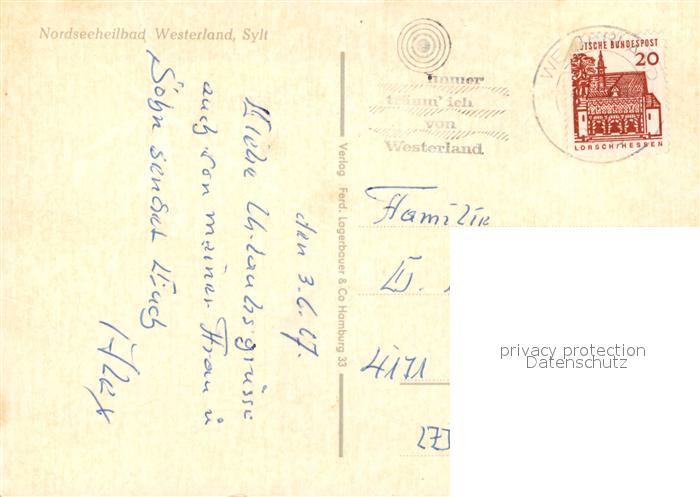 Nordseeheilbad Westerland, Sylt
immer
träum' ich
von
Westerland
WESTERLAND
DEUTSCHE BUNDESPOST
20
LORSCH/HESSEN
Verlag Ferd. Lagerbauer & Co Hamburg 33
den 3.6.67.
Liebe Urlaubsgrüsse
auch von meiner Frau u
Sohn sendet Euch
Alex
Familie
4171
privacy protection
Datenschutz